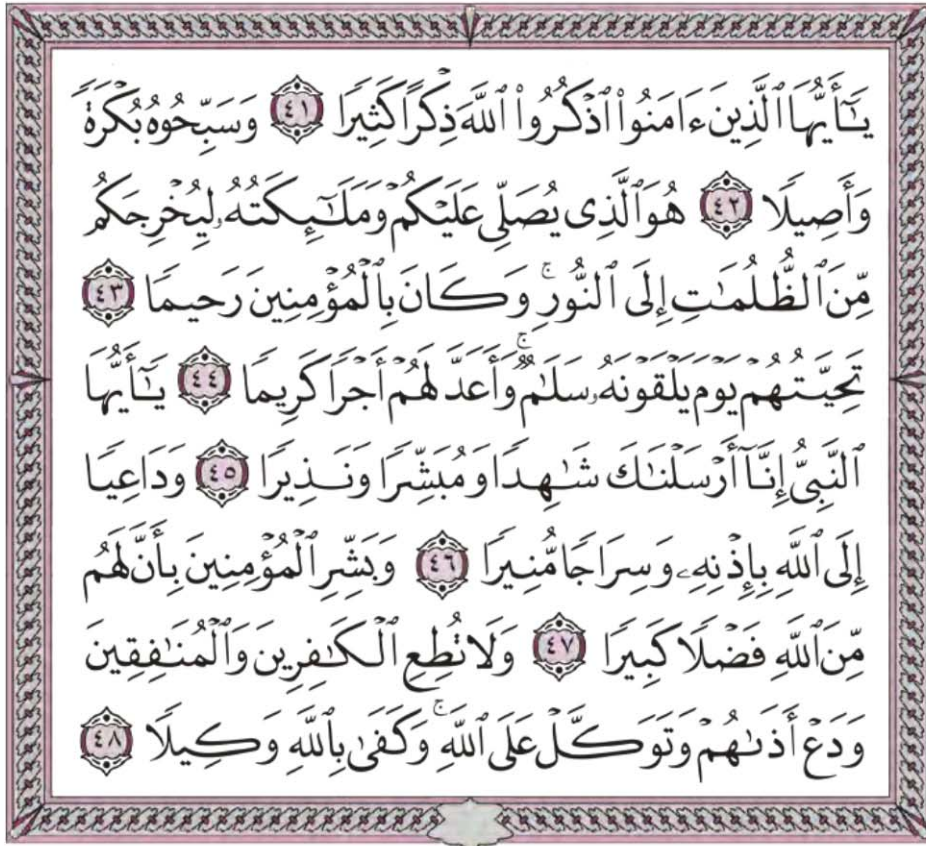 يَـٰٓأَيُّهَا ٱلَّذِينَ ءَامَنُوا۟ ٱذْكُرُوا۟ ٱللَّهَ ذِكْرًا كَثِيرًا ٤١ وَسَبِّحُوهُ بُكْرَةً
وَأَصِيلًا ٤٢ هُوَ ٱلَّذِى يُصَلِّى عَلَيْكُمْ وَمَلَـٰٓئِكَتُهُۥ لِيُخْرِجَكُم
مِّنَ ٱلظُّلُمَـٰتِ إِلَى ٱلنُّورِ ۚ وَكَانَ بِٱلْمُؤْمِنِينَ رَحِيمًا ٤٣
تَحِيَّتُهُمْ يَوْمَ يَلْقَوْنَهُۥ سَلَـٰمٌ ۚ وَأَعَدَّ لَهُمْ أَجْرًا كَرِيمًا ٤٤ يَـٰٓأَيُّهَا
ٱلنَّبِىُّ إِنَّآ أَرْسَلْنَـٰكَ شَـٰهِدًا وَمُبَشِّرًا وَنَذِيرًا ٤٥ وَدَاعِيًا
إِلَى ٱللَّهِ بِإِذْنِهِۦ وَسِرَاجًا مُّنِيرًا ٤٦ وَبَشِّرِ ٱلْمُؤْمِنِينَ بِأَنَّ لَهُم
مِّنَ ٱللَّهِ فَضْلًا كَبِيرًا ٤٧ وَلَا تُطِعِ ٱلْكَـٰفِرِينَ وَٱلْمُنَـٰفِقِينَ
وَدَعْ أَذَىٰهُمْ وَتَوَكَّلْ عَلَى ٱللَّهِ ۚ وَكَفَىٰ بِٱللَّهِ وَكِيلًا ٤٨